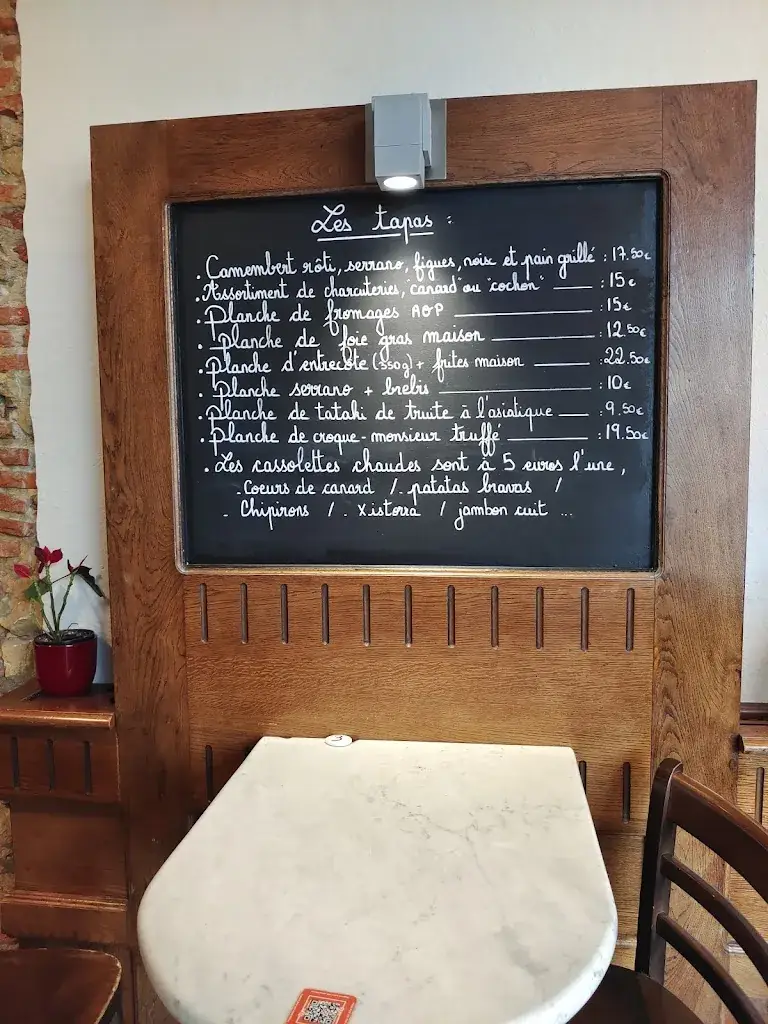 Les tapas :
. Camembert rôti, serrano, figues, noix et pain grillé : 17.50€
. Assortiment de charcuteries, "canard" ou "cochon" : 15€
. Planche de fromages AOP : 15€
. Planche de foie gras maison : 12.50€
. Planche d'entrecôte (350g) + frites maison : 22.50€
. Planche serrano + brebis : 10€
. Planche de tataki de truite à l'asiatique : 9.50€
. Planche de croque-monsieur truffé : 19.50€
. Les cassolettes chaudes sont à 5 euros l'une,
- Coeurs de canard / - patatas bravas /
- Chipirons / - Xistorra / jambon cuit ...